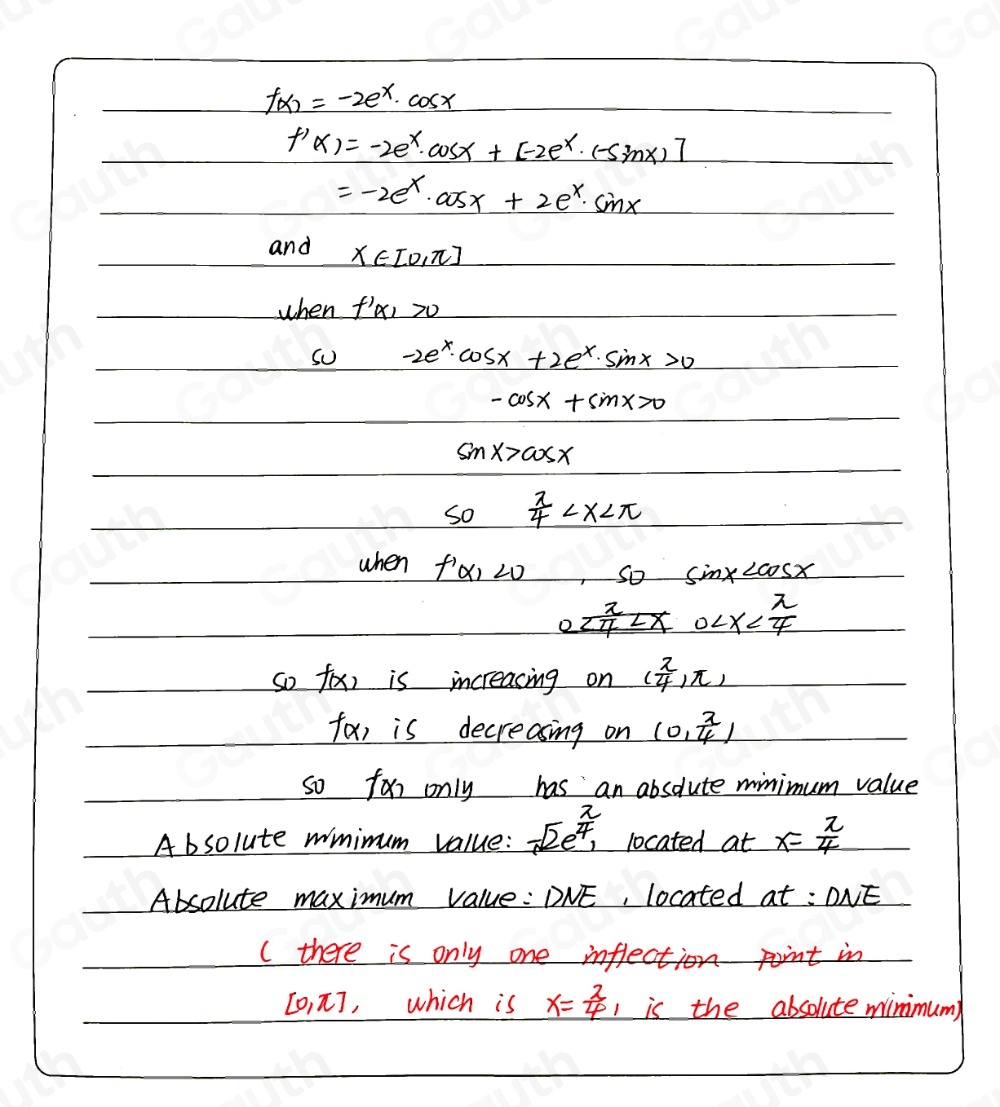 f(x) = -2e^x · cosx
f'(x) = -2e^x · cosx + [-2e^x · (-sinx)]
= -2e^x · cosx + 2e^x · sinx
and x ∈ [0, π]
when f'(x) > 0
so -2e^x · cosx + 2e^x · sinx > 0
-cosx + sinx > 0
sinx > cosx
so π/4 < x < π
when f'(x) < 0, so sinx < cosx
0 < π/4 < x 0 < x < π/4
so f(x) is increasing on (π/4, π)
f(x) is decreasing on (0, π/4)
so f(x) only has an absolute minimum value
Absolute minimum value: -√2e^π/4, located at x = π/4
Absolute maximum value: DNE, located at: DNE
( there is only one inflection point in
[0, π], which is x = π/4, is the absolute minimum)
Gauth